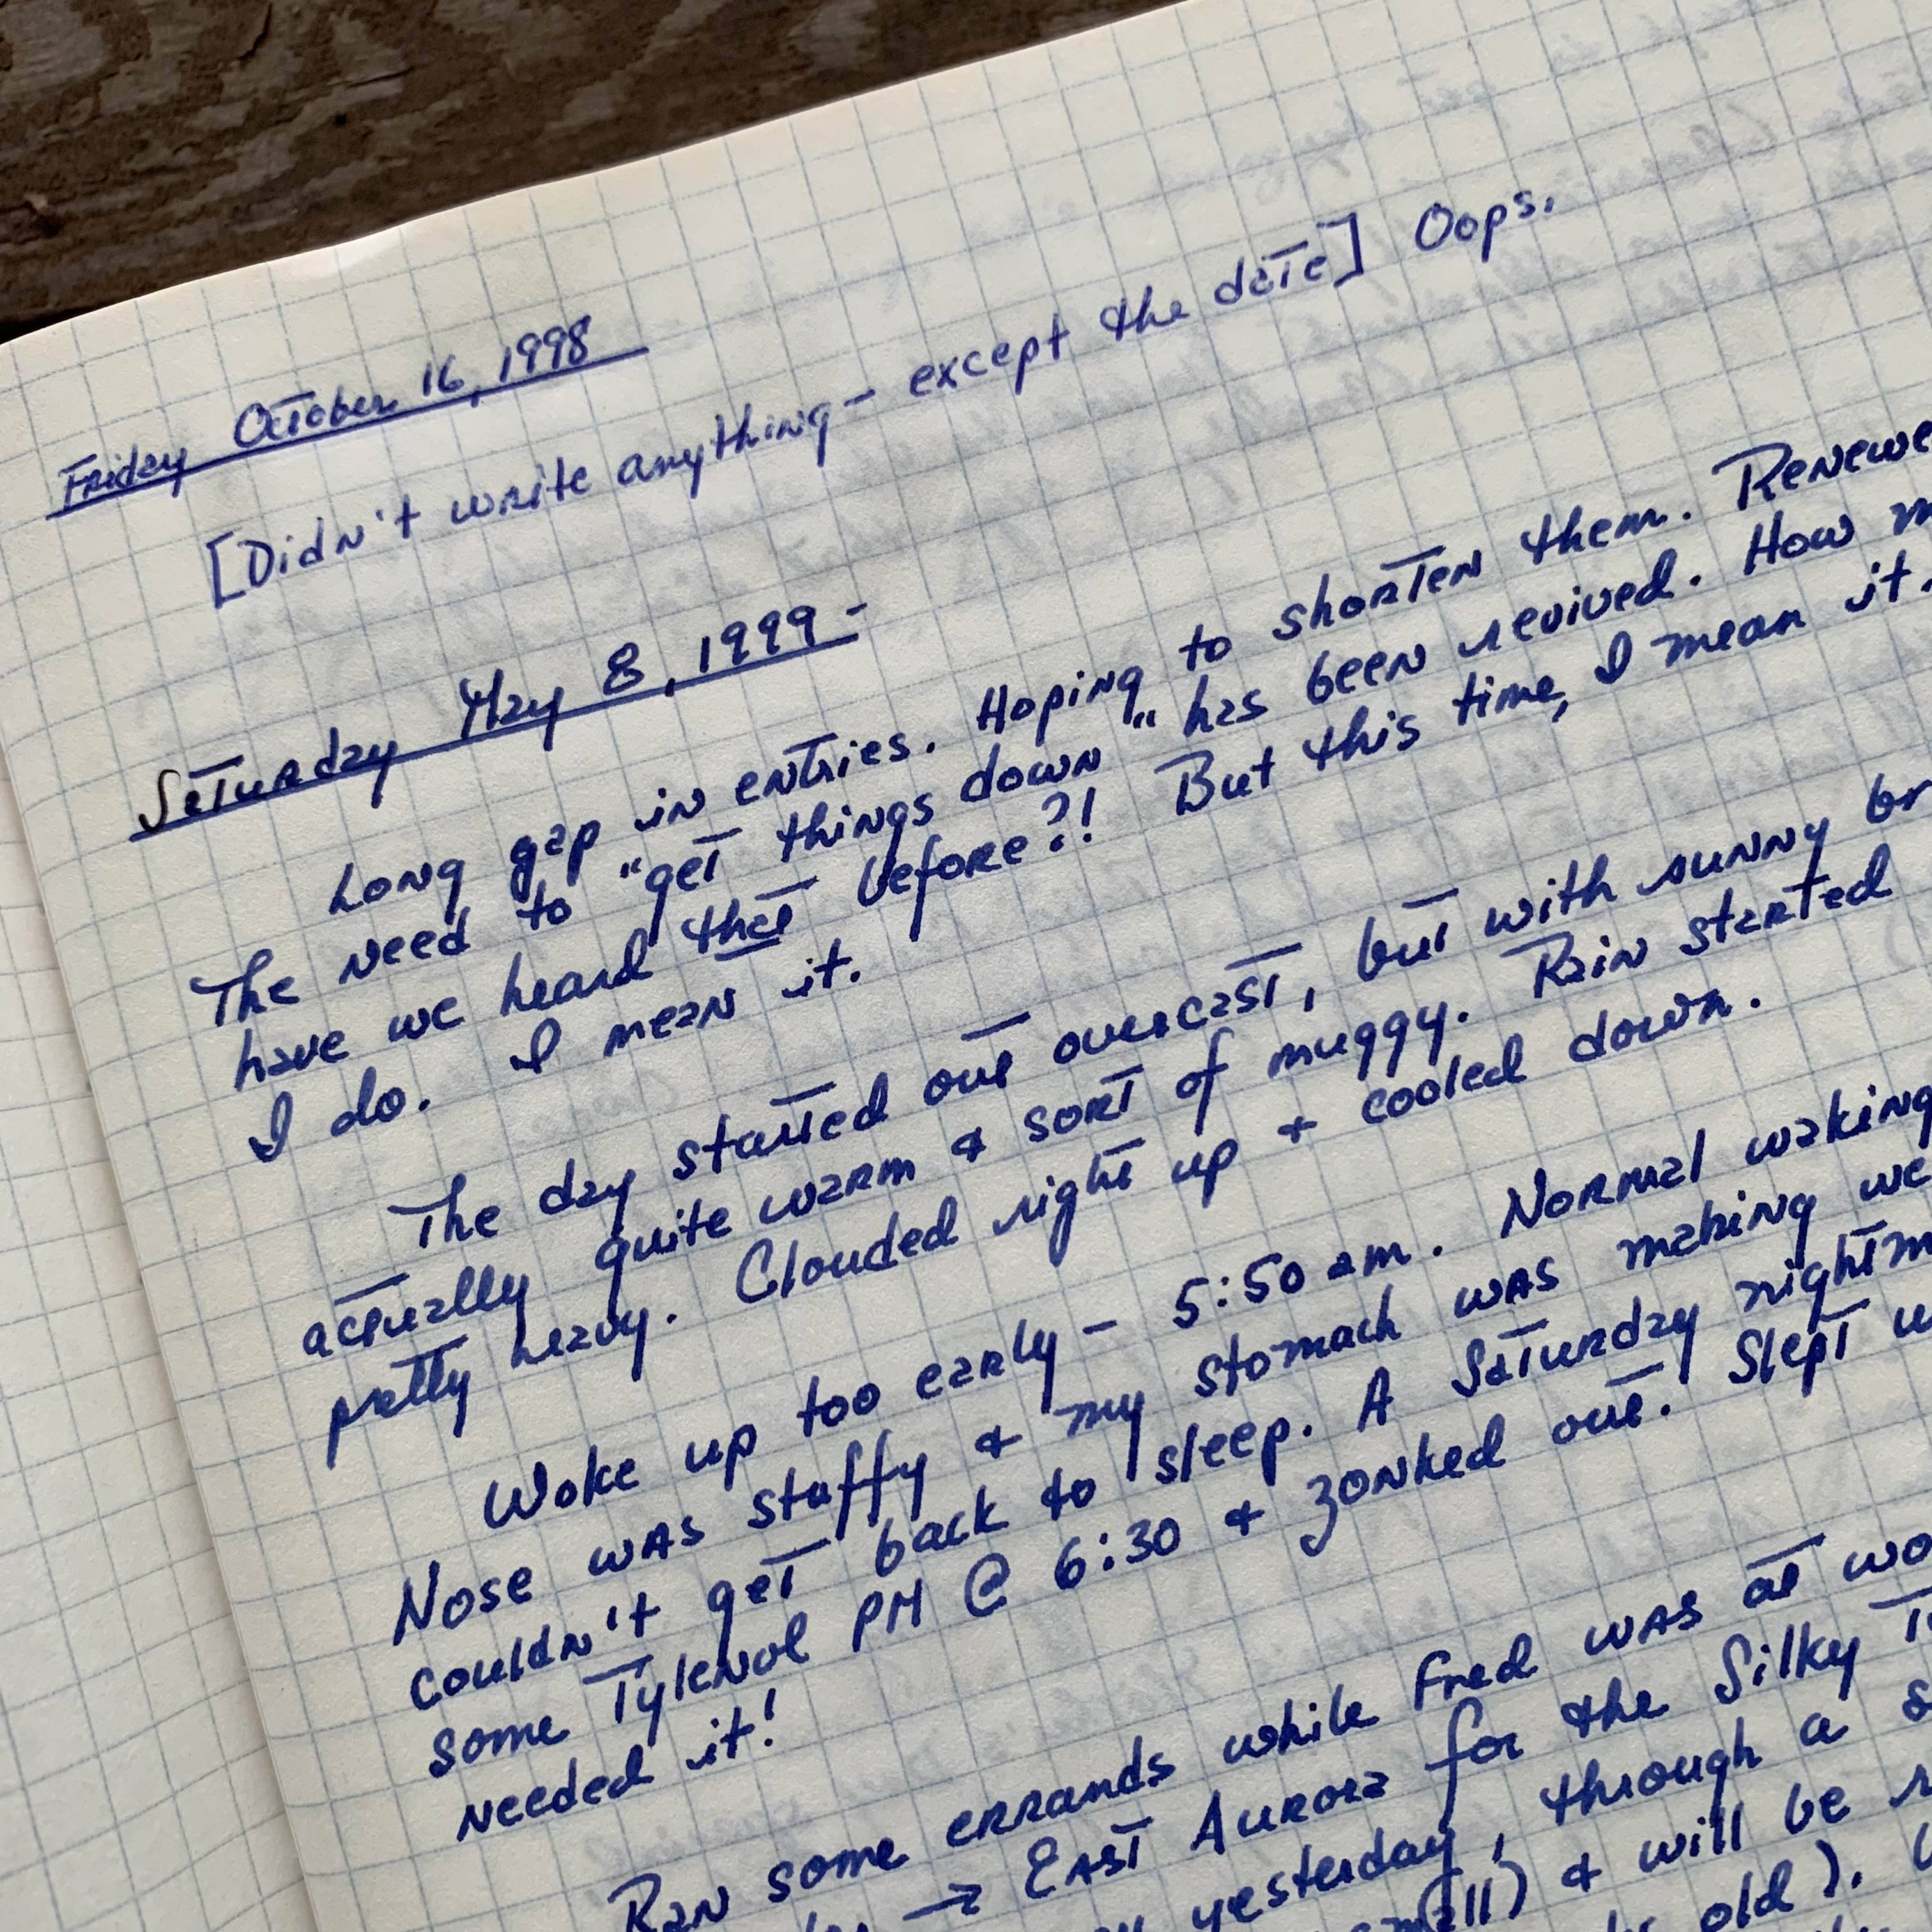 Friday October 16, 1998
[Didn't write anything - except the date] Oops.
Saturday May 8, 1999 -
Long gap in entries. Hoping to shorten them. Renewe
The need to "get things down" has been revived. How m
have we heard that before?! But this time, I mean it.
I do. I mean it.
The day started out overcast, but with sunny br
actually quite warm & sort of muggy. Rain started
pretty heavy. Clouded right up & cooled down.
Woke up too early - 5:50 am. Normal waking
Nose was stuffy & my stomach was making we
couldn't get back to sleep. A Saturday nightm
some Tylenol PM @ 6:30 & zonked out. Slept u
needed it!
Ran some errands while Fred was at wo
→ East Aurora for the Silky T
yesterday, through a s
small) & will be r
old).